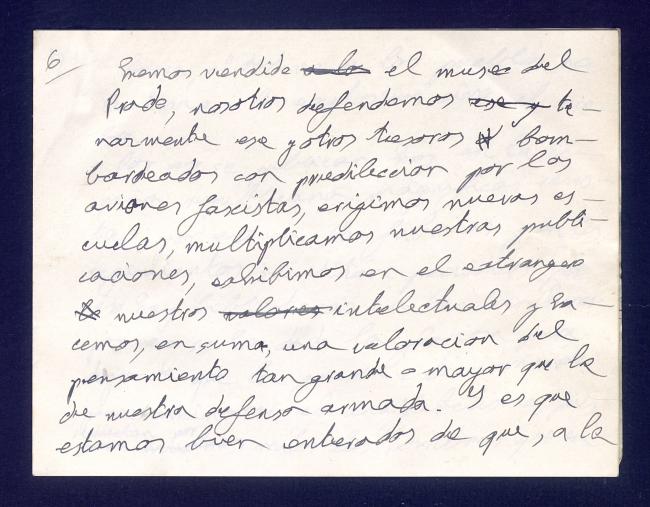 6/ hemos vendido a los el museo del
Prado, nosotros defendemos ese y te-
narmente ese y otros tesoros bom-
bardeados con predilección por los
aviones fascistas, erigimos nuevas es-
cuelas, multiplicamos nuestras publi-
caciones, exhibimos en el estrangero
nuestros valores intelectuales y ha-
cemos, en suma, una valoracion del
pensamiento tan grande o mayor que la
de nuestra defensa armada. Y es que
estamos bien enterados de que, a la